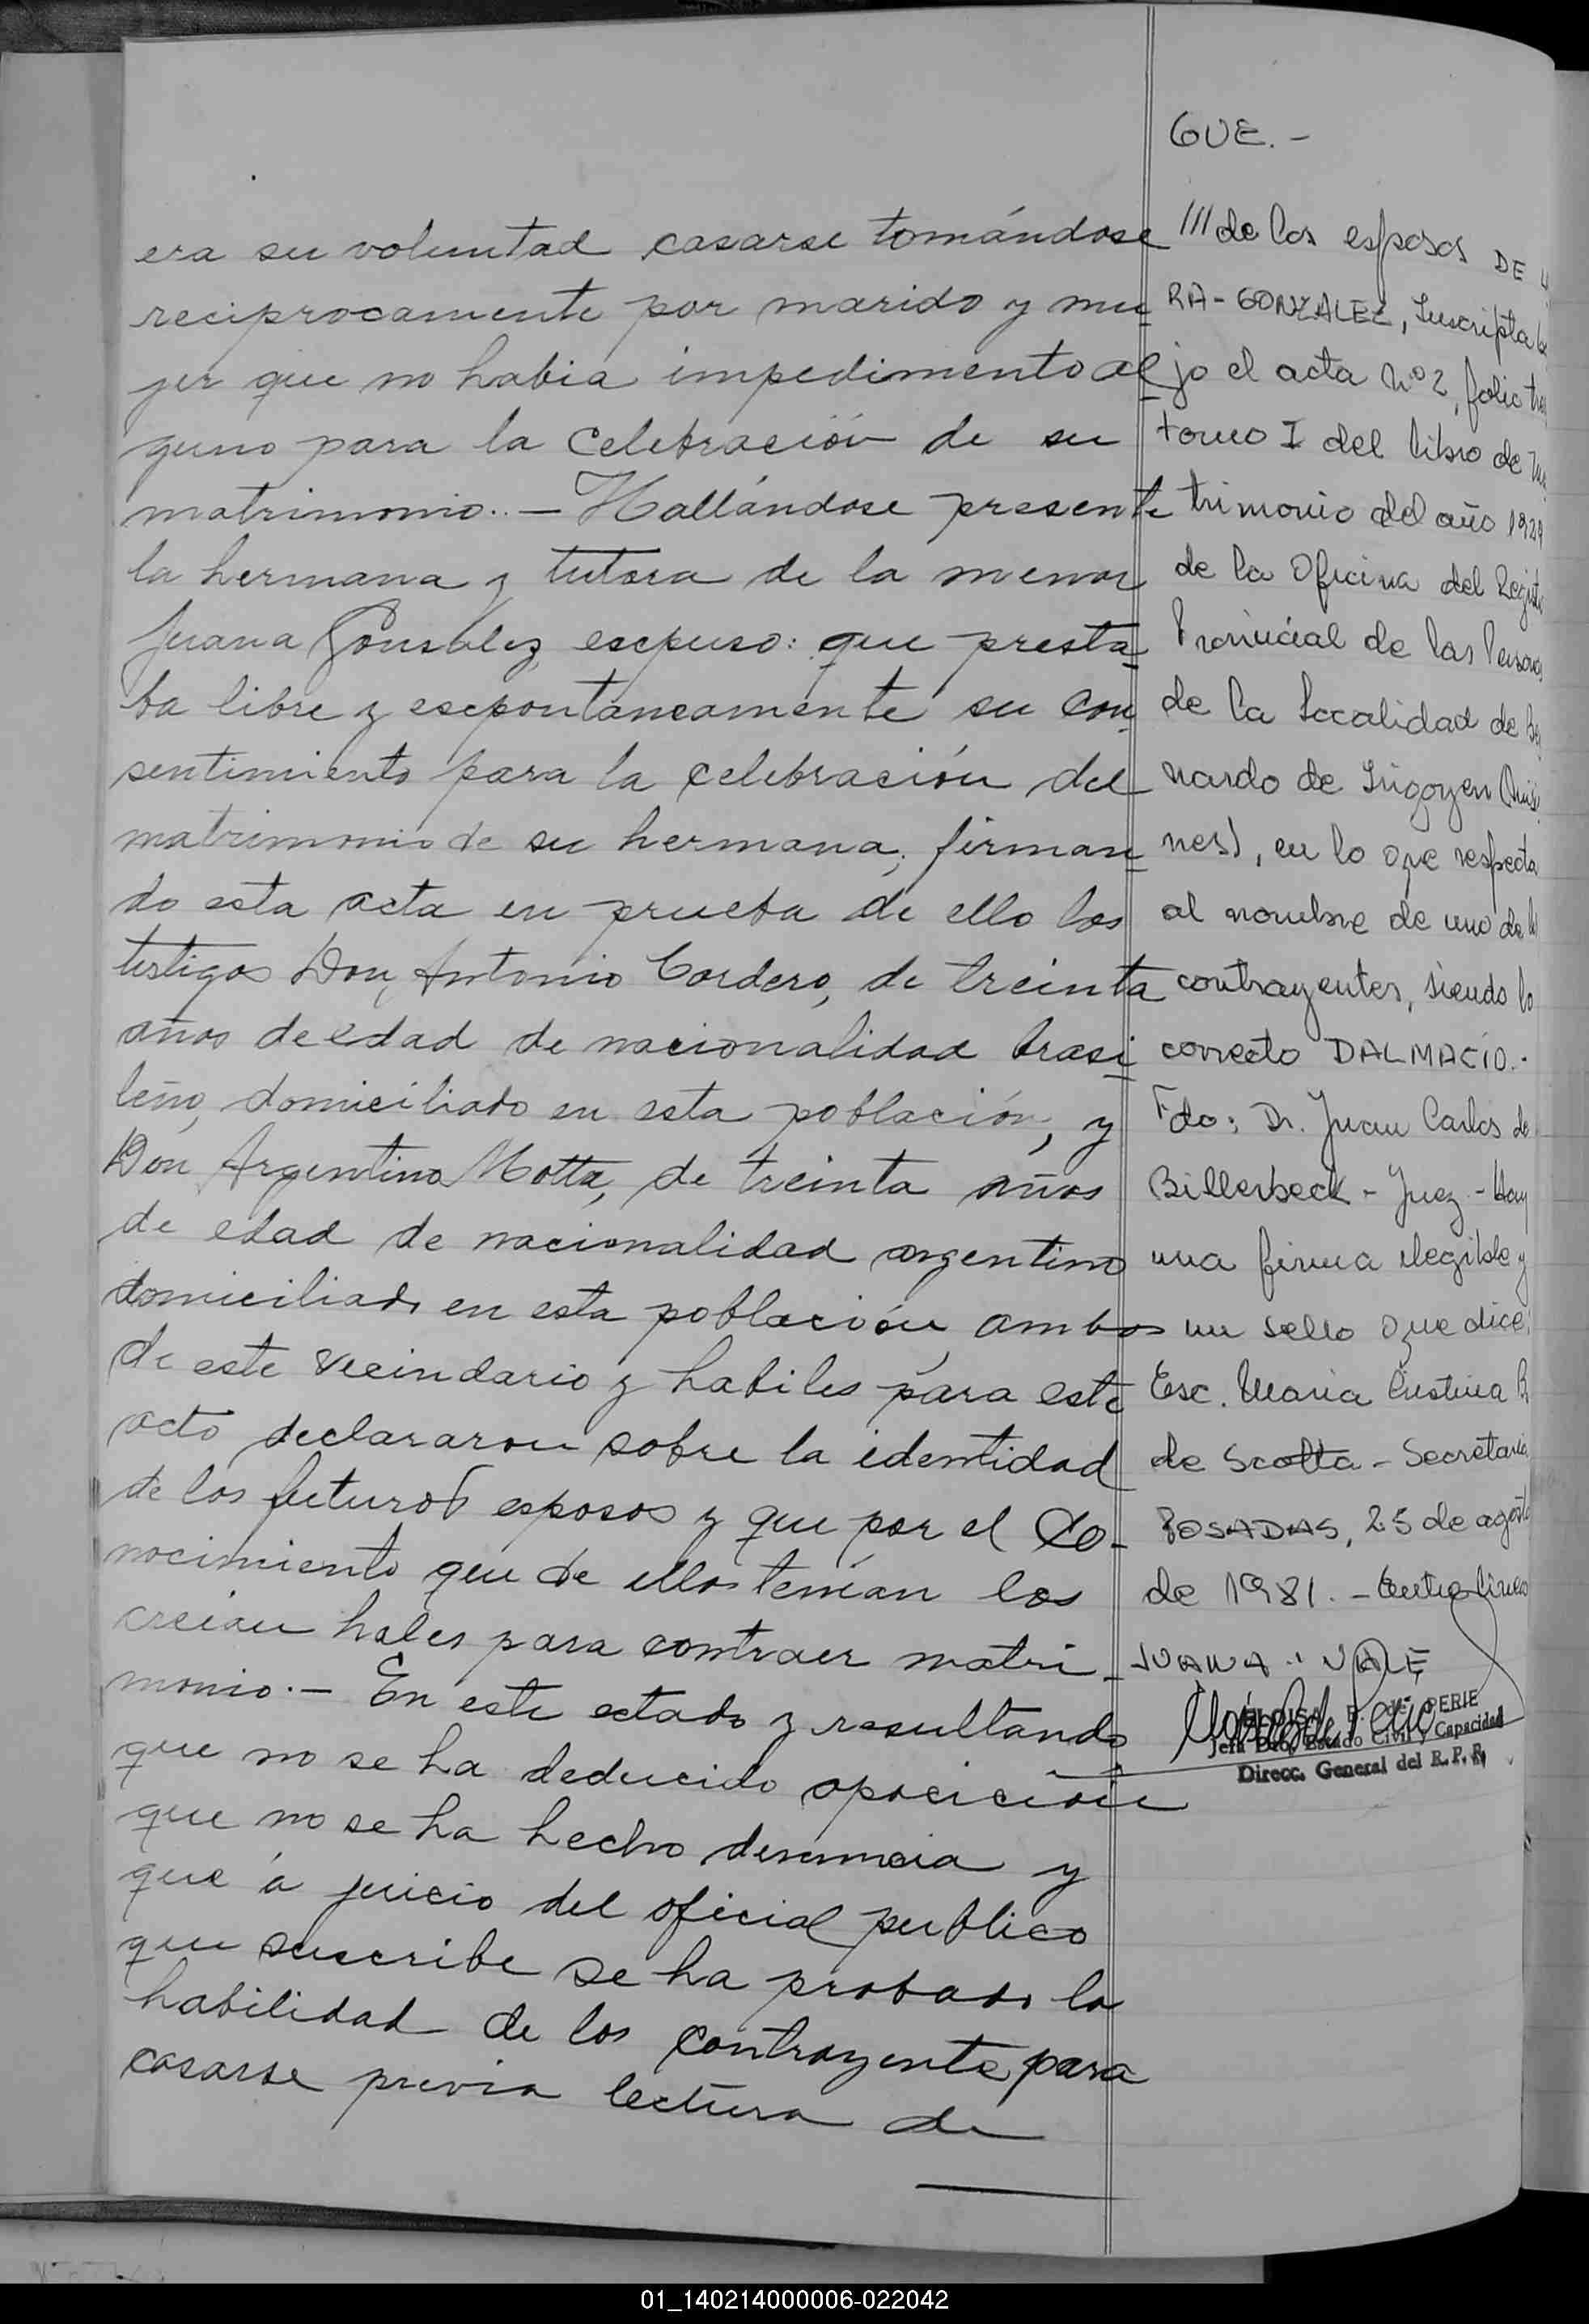 era su voluntad casarse tomándose
reciprocamente por marido y mu
jer que no habia impedimento al
guno para la celebración de su
matrimonio.. — Hallándose presente
la hermana y tutora de la menor
Juana Gonsalez, escpuso: que presta
ba libre y escpontaneamente su con
sentimiento para la celebración del
matrimonio de su hermana, firman
do esta acta en prueba de ello los
testigos Don, Antonio Cordero, de treinta
años de edad de nacionalidad brasi
leño, domiciliado en esta población, y
Don Argentino Motta, de treinta años
de edad de nacionalidad argentino
domiciliado en esta población, ambos
de este vecindario y habiles para este
acto declararon sobre la identidad
de los futuros esposos y que por el co-
nocimiento que de ellos tenían los
creian hales para contraer matri-
monio.- En este estado y resultando
que no se ha deducido oposición
que no se ha hecho denuncia y
que á juicio del oficial publico
que suscribe se ha probado la
habilidad de los contrayente para
casarse previa lectura de
GUE.-
///de los esposos DE
RA-GONZALEZ, Inscripta
jo el acta Nº 2, folio
tomo I del libro de
trimonio del año 1929
de la Oficina del Registro
Provincial de las Personas
de la localidad de
nardo de Irigoyen
nes), en lo que respecta
al nombre de uno de
contrayentes, siendo lo
correcto DALMACIO.-
Fdo: Dr. Juan Carlos de
Billerbeck - Juez - Hay
una firma ilegible y
un sello que dice:
Esc. Maria Cristina
de Scotta - Secretaria
POSADAS, 25 de agosto
de 1981. - Entrelineas
JUANA: VALE
ELOISA de PERIE
Jefa Dto. Estado Civil y Capacidad
Direcc. General del R.P.P.
01_140214000006-022042